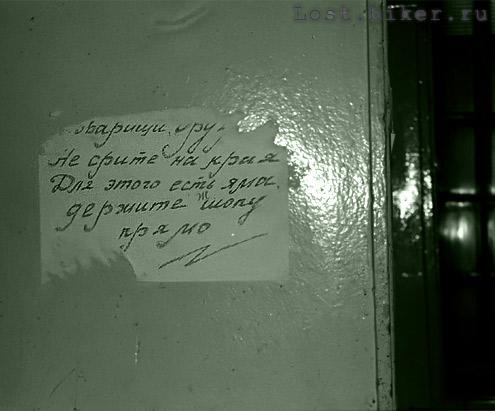 Lost.hiker.ru
оварищи, дру
Не срите на края
Для этого есть яма.
держите жопу
прямо